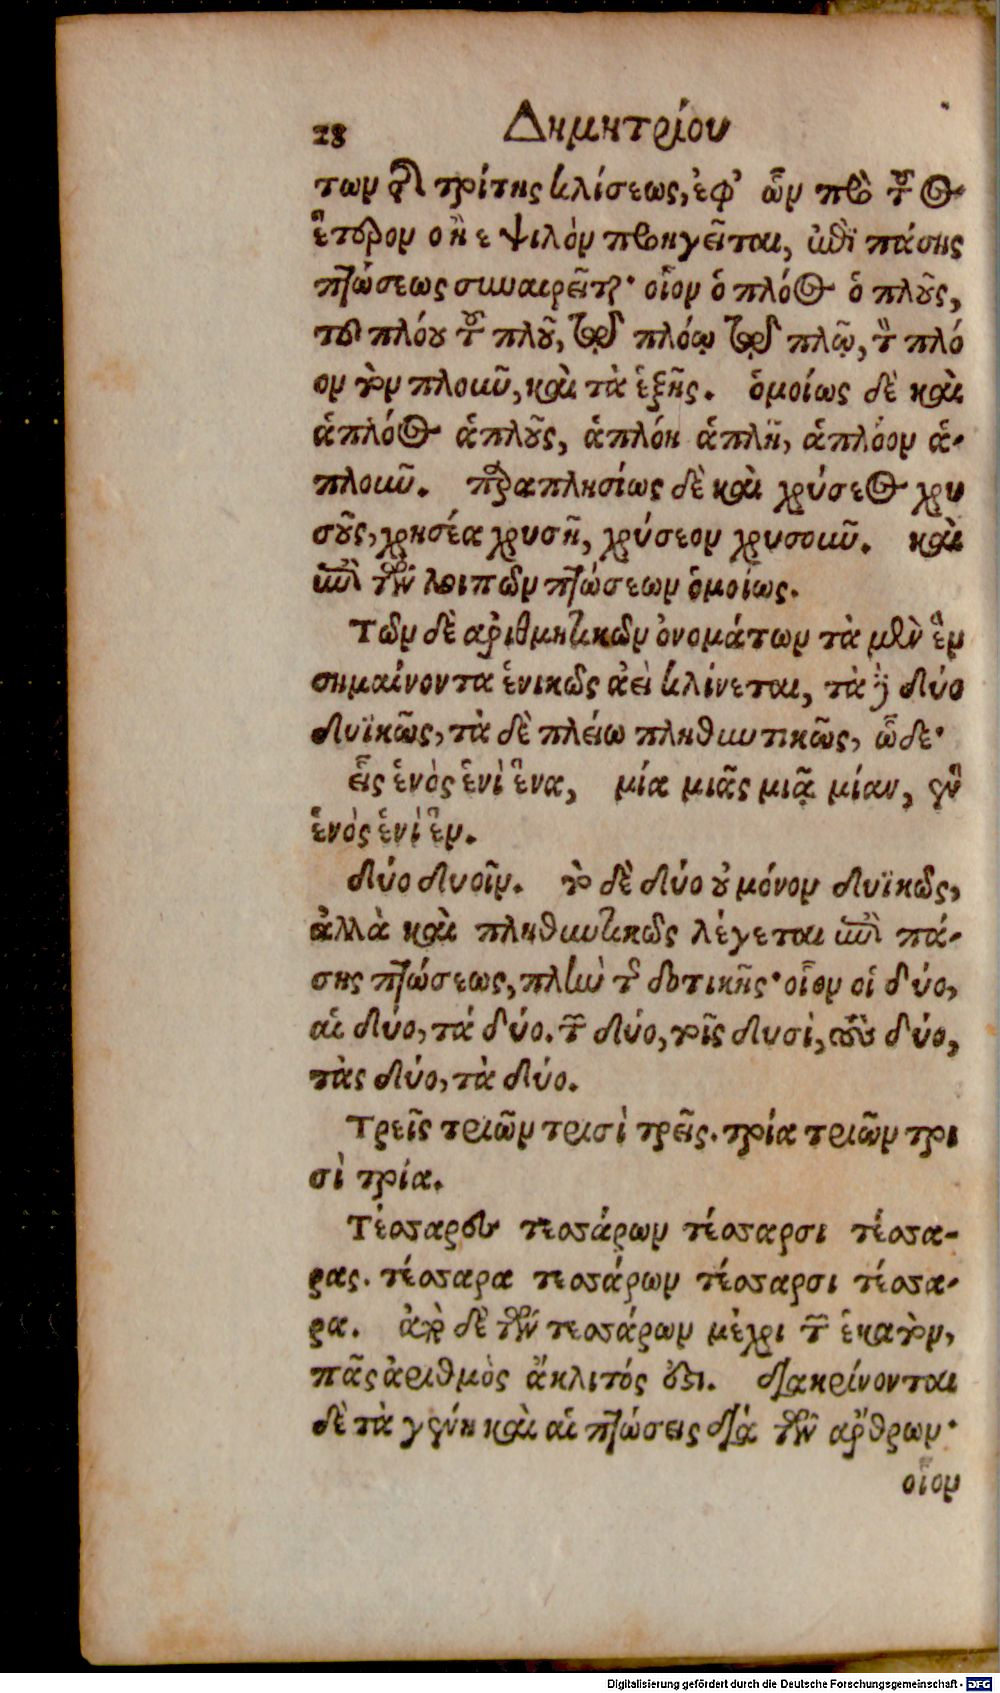 28 Δημητρίου
των τῆς τρίτης κλίσεως, ἐφ' ὧν πρὸ τοῦ ος
ἕτερον ο ἢ ε ψιλὸν προηγεῖται, ἐπὶ πάσης
πτώσεως συναιρεῖται· οἷον ὁ πλόος ὁ πλοῦς,
τοῦ πλόου τοῦ πλοῦ, τῷ πλόῳ τῷ πλῷ, τὸν πλό
ον τὸν πλοῦν, καὶ τὰ ἑξῆς. ὁμοίως δὲ καὶ
ἁπλόος ἁπλοῦς, ἁπλόη ἁπλῆ, ἁπλόον ἁ-
πλοῦν. παραπλησίως δὲ καὶ χρύσεος χρυ
σοῦς, χρησέα χρυσῆ, χρύσεον χρυσοῦν. καὶ
ἐπὶ τῶν λοιπῶν πτώσεων ὁμοίως.
Τῶν δὲ ἀριθμητικῶν ὀνομάτων τὰ μὲν ἓν
σημαίνοντα ἑνικῶς ἀεὶ κλίνεται, τὰ δὲ δύο
δυϊκῶς, τὰ δὲ πλείω πληθυντικῶς, ὧδε·
εἷς ἑνὸς ἑνὶ ἕνα, μία μιᾶς μιᾷ μίαν, ἓν
ἑνὸς ἑνὶ ἓν.
δύο δυοῖν. τὸ δὲ δύο οὐ μόνον δυϊκῶς,
ἀλλὰ καὶ πληθυντικῶς λέγεται ἐπὶ πά-
σης πτώσεως, πλὴν τῆς δοτικῆς· οἷον οἱ δύο,
αἱ δύο, τὰ δύο. τῶν δύο, τοῖς δυσὶ, τοὺς δύο,
τὰς δύο, τὰ δύο.
Τρεῖς τριῶν τρισὶ τρεῖς. τρία τριῶν τρι
σὶ τρία.
Τέσσαρες τεσσάρων τέσσαρσι τέσσα-
ρας. τέσσαρα τεσσάρων τέσσαρσι τέσσα-
ρα. ἀπὸ δὲ τῶν τεσσάρων μέχρι τῶν ἑκατὸν,
πᾶς ἀριθμὸς ἄκλιτός ἐστι. διακρίνονται
δὲ τὰ γένη καὶ αἱ πτώσεις διὰ τῶν ἄρθρων·
οἷον
Digitalisierung gefördert durch die Deutsche Forschungsgemeinschaft - DFG